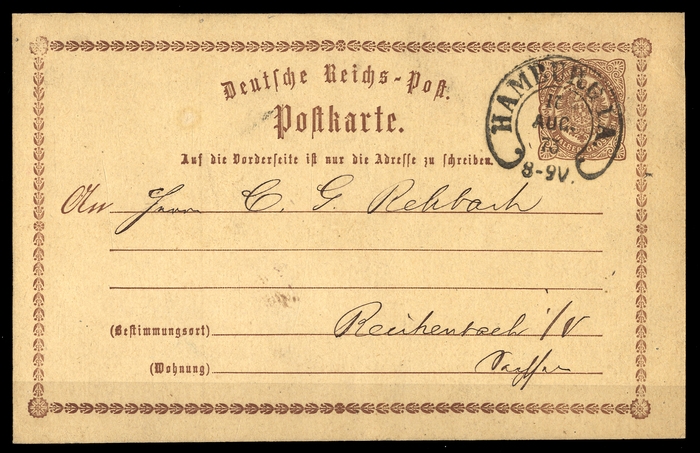 Deutsche Reichs-Post.
Postkarte.
HAMBURG I.A.
AUG.
73
8-9V.
Auf die Vorderseite ist nur die Adresse zu schreiben.
An Herrn C. G. Rehbach
(Bestimmungsort) Reichenbach i/V
(Wohnung) Sachsen